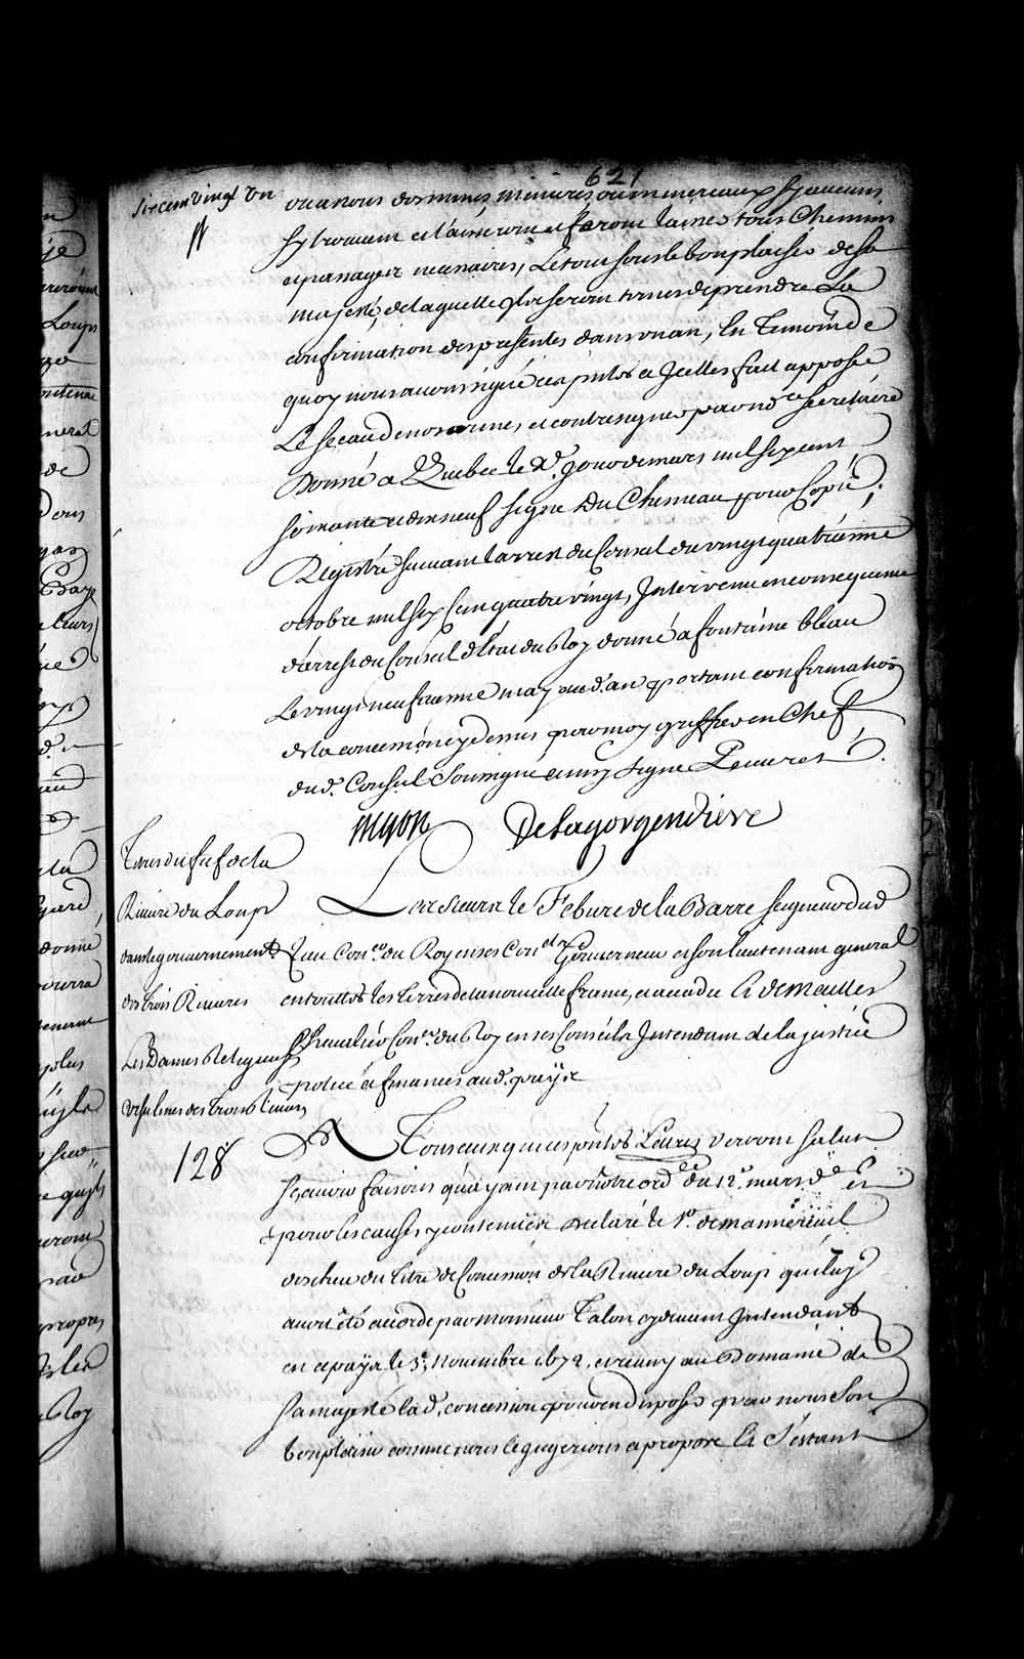 621
Six cent vingt un
ou a nous des mines, minieres, ou mineraux sy aucuns
sy trouvent et laisseront et feront laisser tous chemins
et passages necessaires, Le tout sous le bon plaisir de sa
majesté, de laquelle seront tenus de prendre La
confirmation des presentes dans un an, En Temoin de
quoy nous avons signé ces pntes a Icelles fait apposer
Le sceau de nos armes, et contresigner par nre Secretaire
Donné a Quebec le jour de mars mil six cent
soixante et dix neuf signé Du Chesneau pour Copie;
Régistré suivant l'arrest du Conseil du vingt quatriéme
octobre mil six Cent quatre vingt, Intervenu en consequence
d'arrest du Conseil d'Etat du Roy donné a fontaine bleau
Le vingt neufiesme may aud. an portant confirmation
de la concession cy dessus par moy greffier en Chef
dud. Conseil Soussigné signé Peuvret
Delagorgendiere
Titres du fief de la
Riviere du Loup
dans le gouvernement
des trois Rivieres
Les Dames Religieuses
Ursulines des trois Rivieres
128
Le sieur Le Febure de la Barre seigneur dud
Lieu Con.er du Roy en ses Con.els Gouverneur et son lieutenant general
en touttes les terres de la nouvelle france, et accadie Et demeulles
Chevalier Con.er du Roy en ses Conseils Intendant de la justice
police et finances aud. païs
A Tous ceux qui ces pntes Lettres verront salut
Sçavoir faisons qu'ayant par nôtre ord.ce du 12.e mars d.er et
pour les causes y contenües declaré le s.r de mannereüil
descheu du titre de Concession de la Riviere du Loup qui luy
avoit été accordé par monsieur Talon cydevant Intendant
en ce païs le 3.e novembre 1672. et reuny au Domaine de
sa majesté lad. concession pour en disposer par nous son
bon plaisir comme nous le jugerions a propos Et s'estant